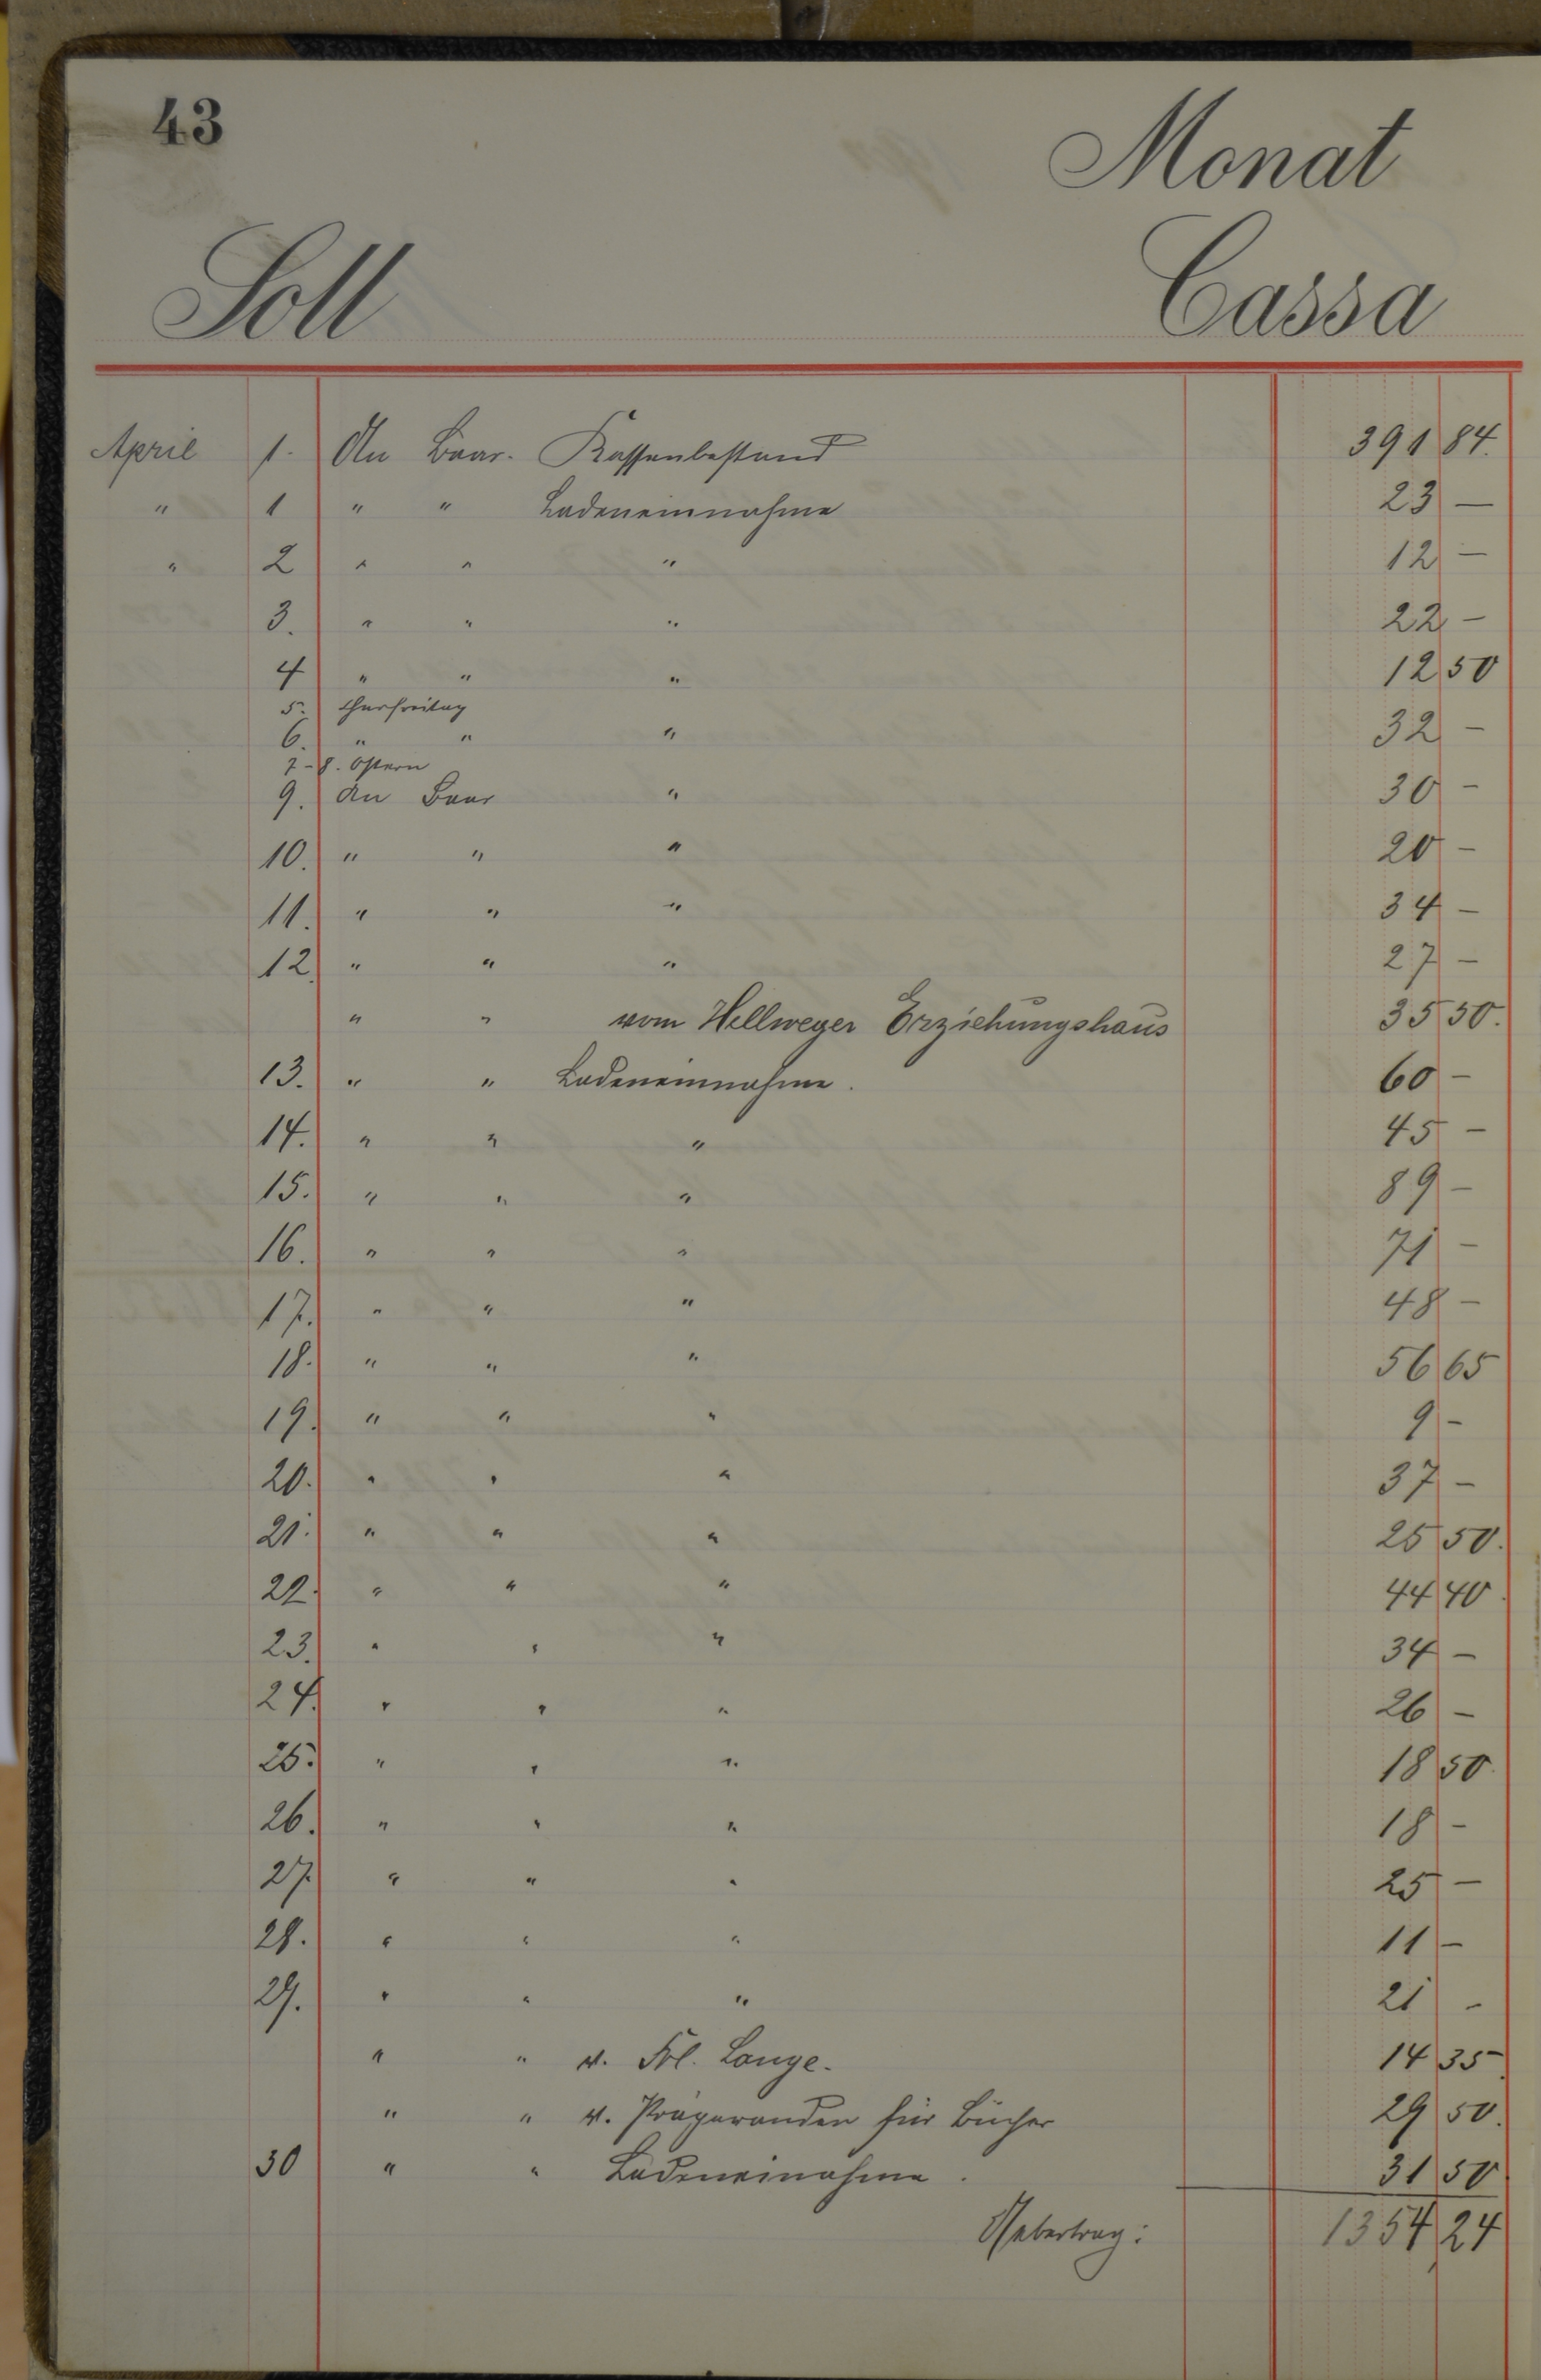 43
Monat
Soll Cassa
April 1. An Baar. Kassenbestand 391 84.
" 1 " " Ladeneinnahme 23 —
" 2 " " " 12 —
3. " " " 22 —
4 " " " 12 50
5. Charfreitag
6. " " " 32 —
7-8. Ostern
9. An Baar " 30 —
10. " " " 20 —
11. " " " 34 —
12. " " " 27 —
" " vom Hellweger Erziehungshaus 35 50.
13. " " Ladeneinnahme. 60 —
14. " " " 45 —
15. " " " 89 —
16. " " " 71 —
17. " " " 48 —
18. " " " 56 65
19. " " " 9 —
20. " " " 37 —
21. " " " 25 50.
22. " " " 44 40.
23. " " " 34 —
24. " " " 26 —
25. " " " 18 50.
26. " " " 18 —
27. " " " 25 —
28. " " " 11 —
29. " " " 21 —
" " v. Frl. Lange. 14 35
" " v. Präparanden für Bücher 29 50.
30 " " Ladeneinahme. 31 50
Uebertrag: 1354 24